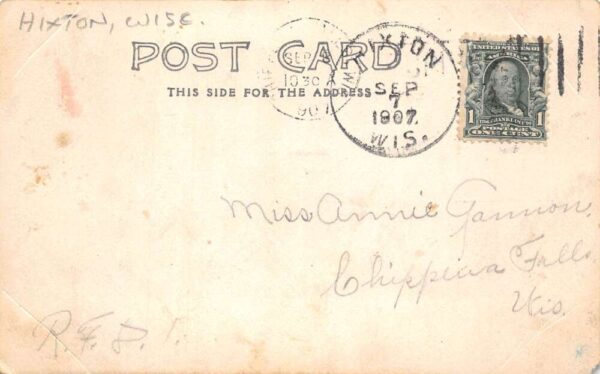 HIXTON, WISC.
POST CARD
THIS SIDE FOR THE ADDRESS
SEP
1030
190
HIXTON
SEP
7
1907
WIS.
UNITED STATES OF AMERICA
1 1
FRANKLIN
POSTAGE
ONE CENT
Miss Annie Gannon,
Chippewa Falls
Wis.
R.F.D. 1.